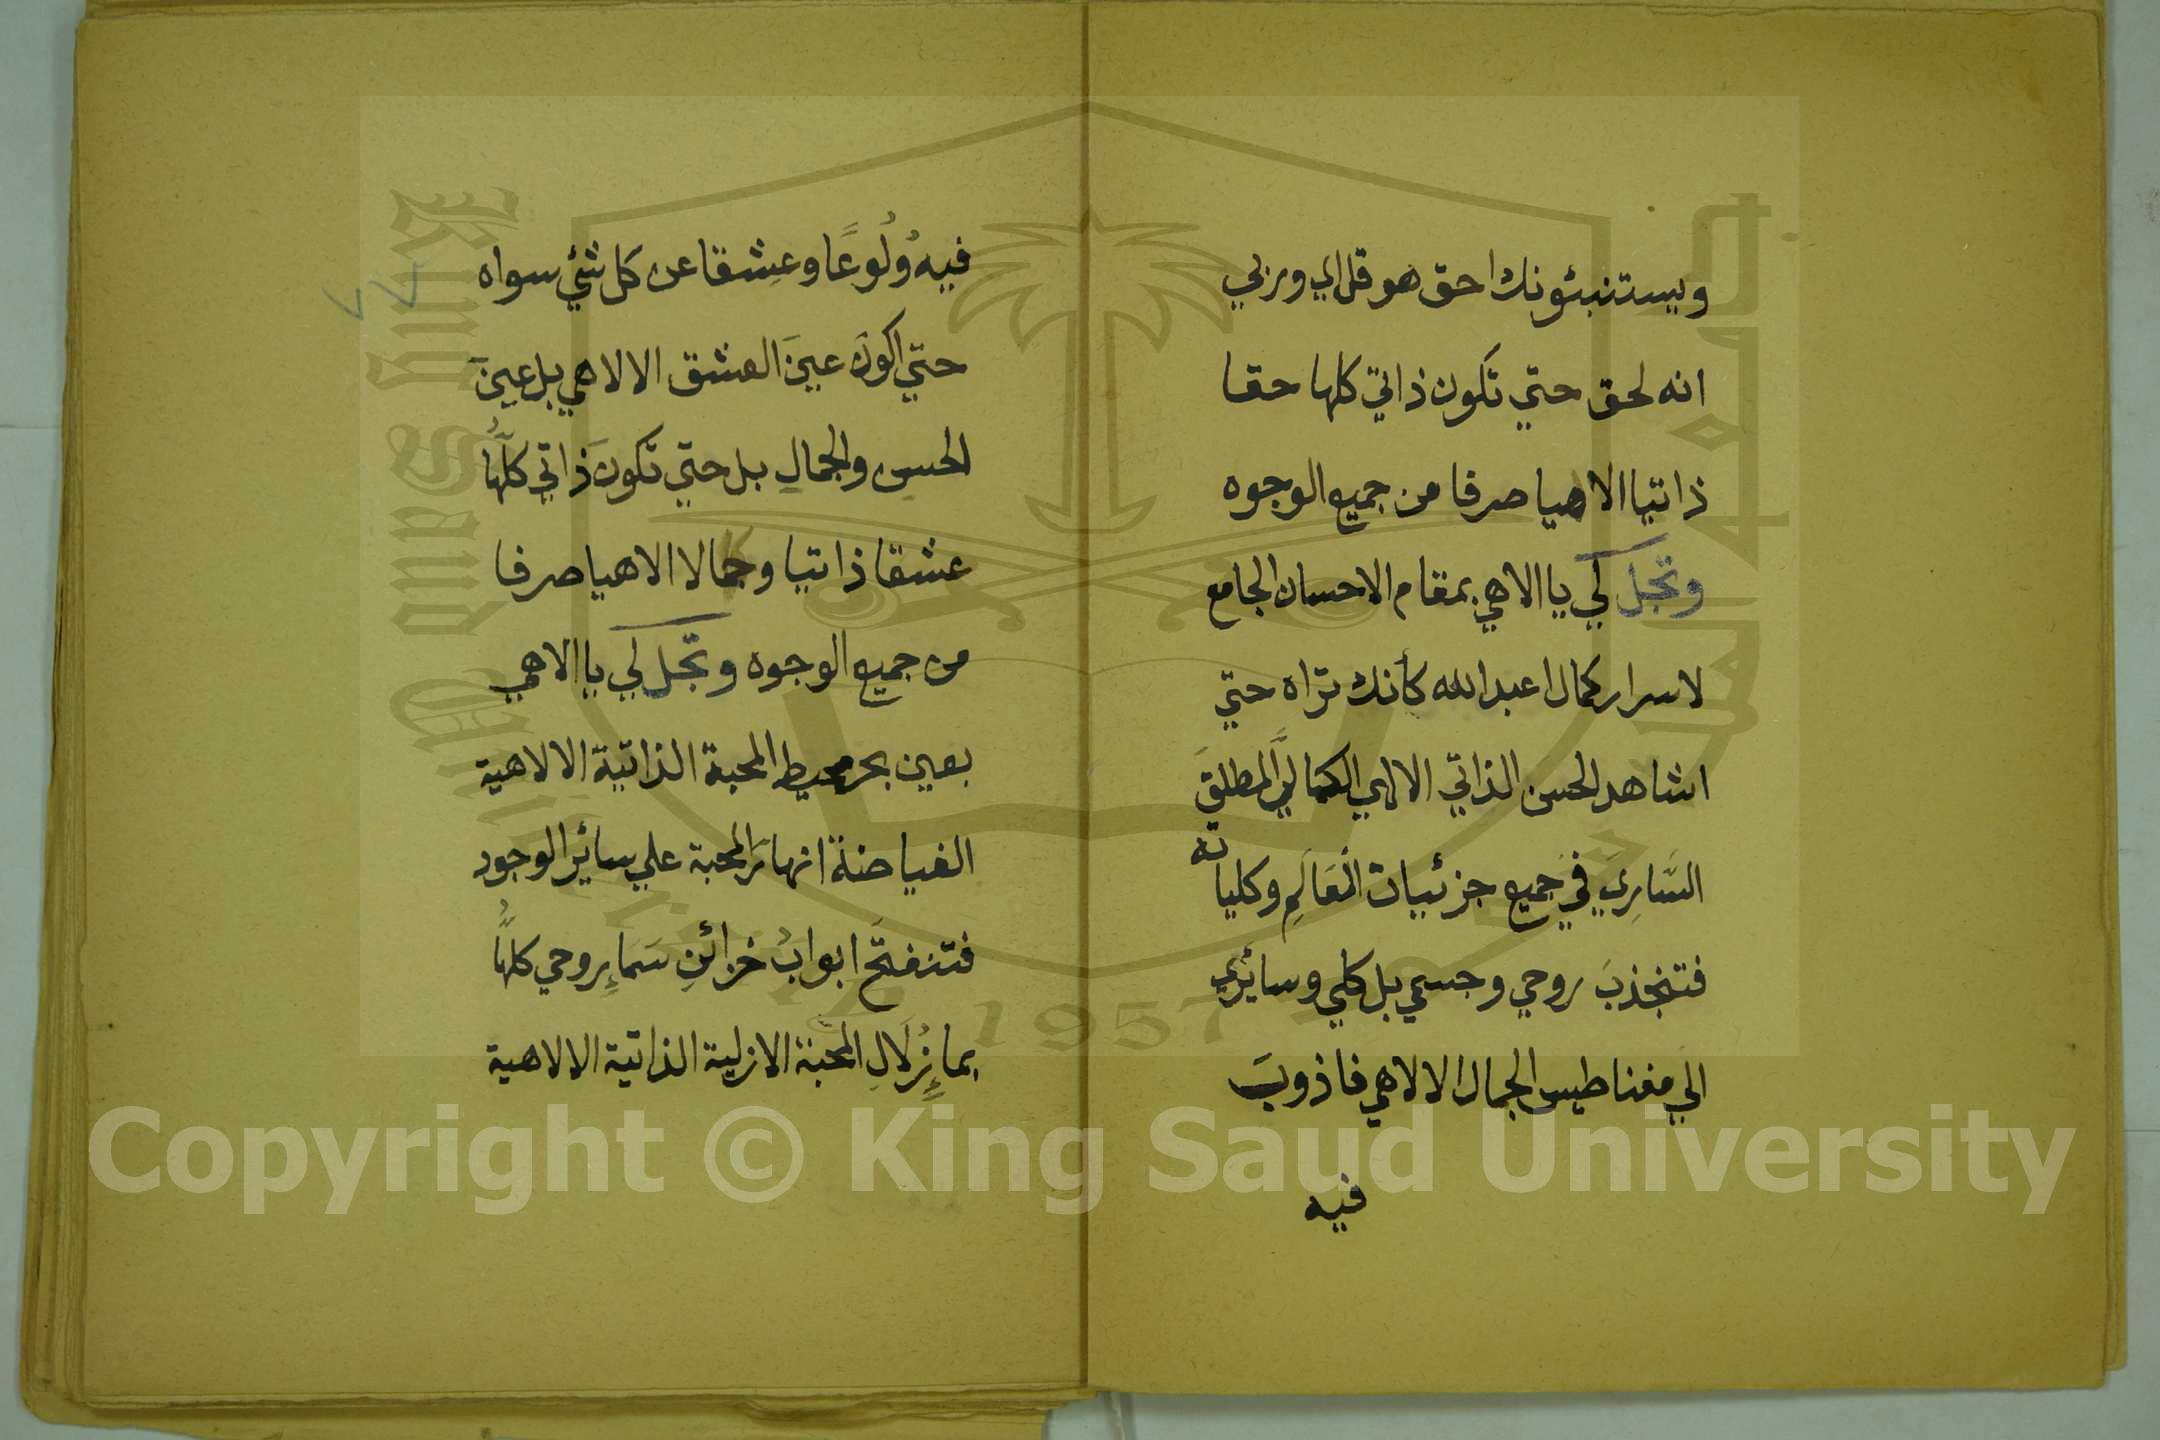 ويستنبئونك احق هو قل اي وربي
انه لحق حتي تكون ذاتي كلها حقا
ذاتيا الاهيا صرفا من جميع الوجوه
وتجل لي يا الاهي بمقام الاحسان الجامع
لاسرار كمال اعبد الله كأنك تراه حتي
اشاهد الحسن الذاتي الالهي الكمالي المطلقَ
السَّارِيَ في جَميع جزئيات العَالَمِ وكلياته
فتنجذبَ روحي وجسمي بل كلي وسائري
الي مغناطيس الجمال الالاهي فاذوبَ
فيه
فيه وُلُوعًا وعِشقا عن كل شئي سواه
حتي اكونَ عينَ العشق الالاهي بل عينَ
الحسن والجمالِ بل حتي تكونَ ذاتي كلُّها
عشقا ذاتيا وجمالا الاهيا صرفا
من جميع الوجوه وتجل لي يا الاهي
بعين بحر محيط المحبة الذاتية الالاهية
الفياضة انهارَ المحبة علي سائر الوجود
فتنفتحَ ابوابُ خزائنِ سَماءِ روحي كلُّها
بماءِ زُلَالِ المحبَّة الازلية الذاتية الالاهية
King Saud University
1957
Copyright © King Saud University